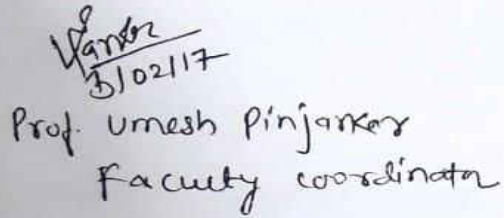 3/02/17
Prof. Umesh Pinjarker
Faculty coordinator